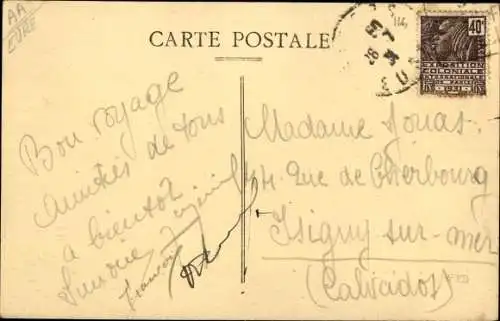 AA
EURE
CARTE POSTALE
40c
EXPOSITION
COLONIALE
INTERNATIONALE
DE PARIS
1931
Bon voyage
Amitiés de tous
à bientôt
Simone
Madame Jouas
44 Rue de Cherbourg
Isigny-sur-mer
(Calvados)